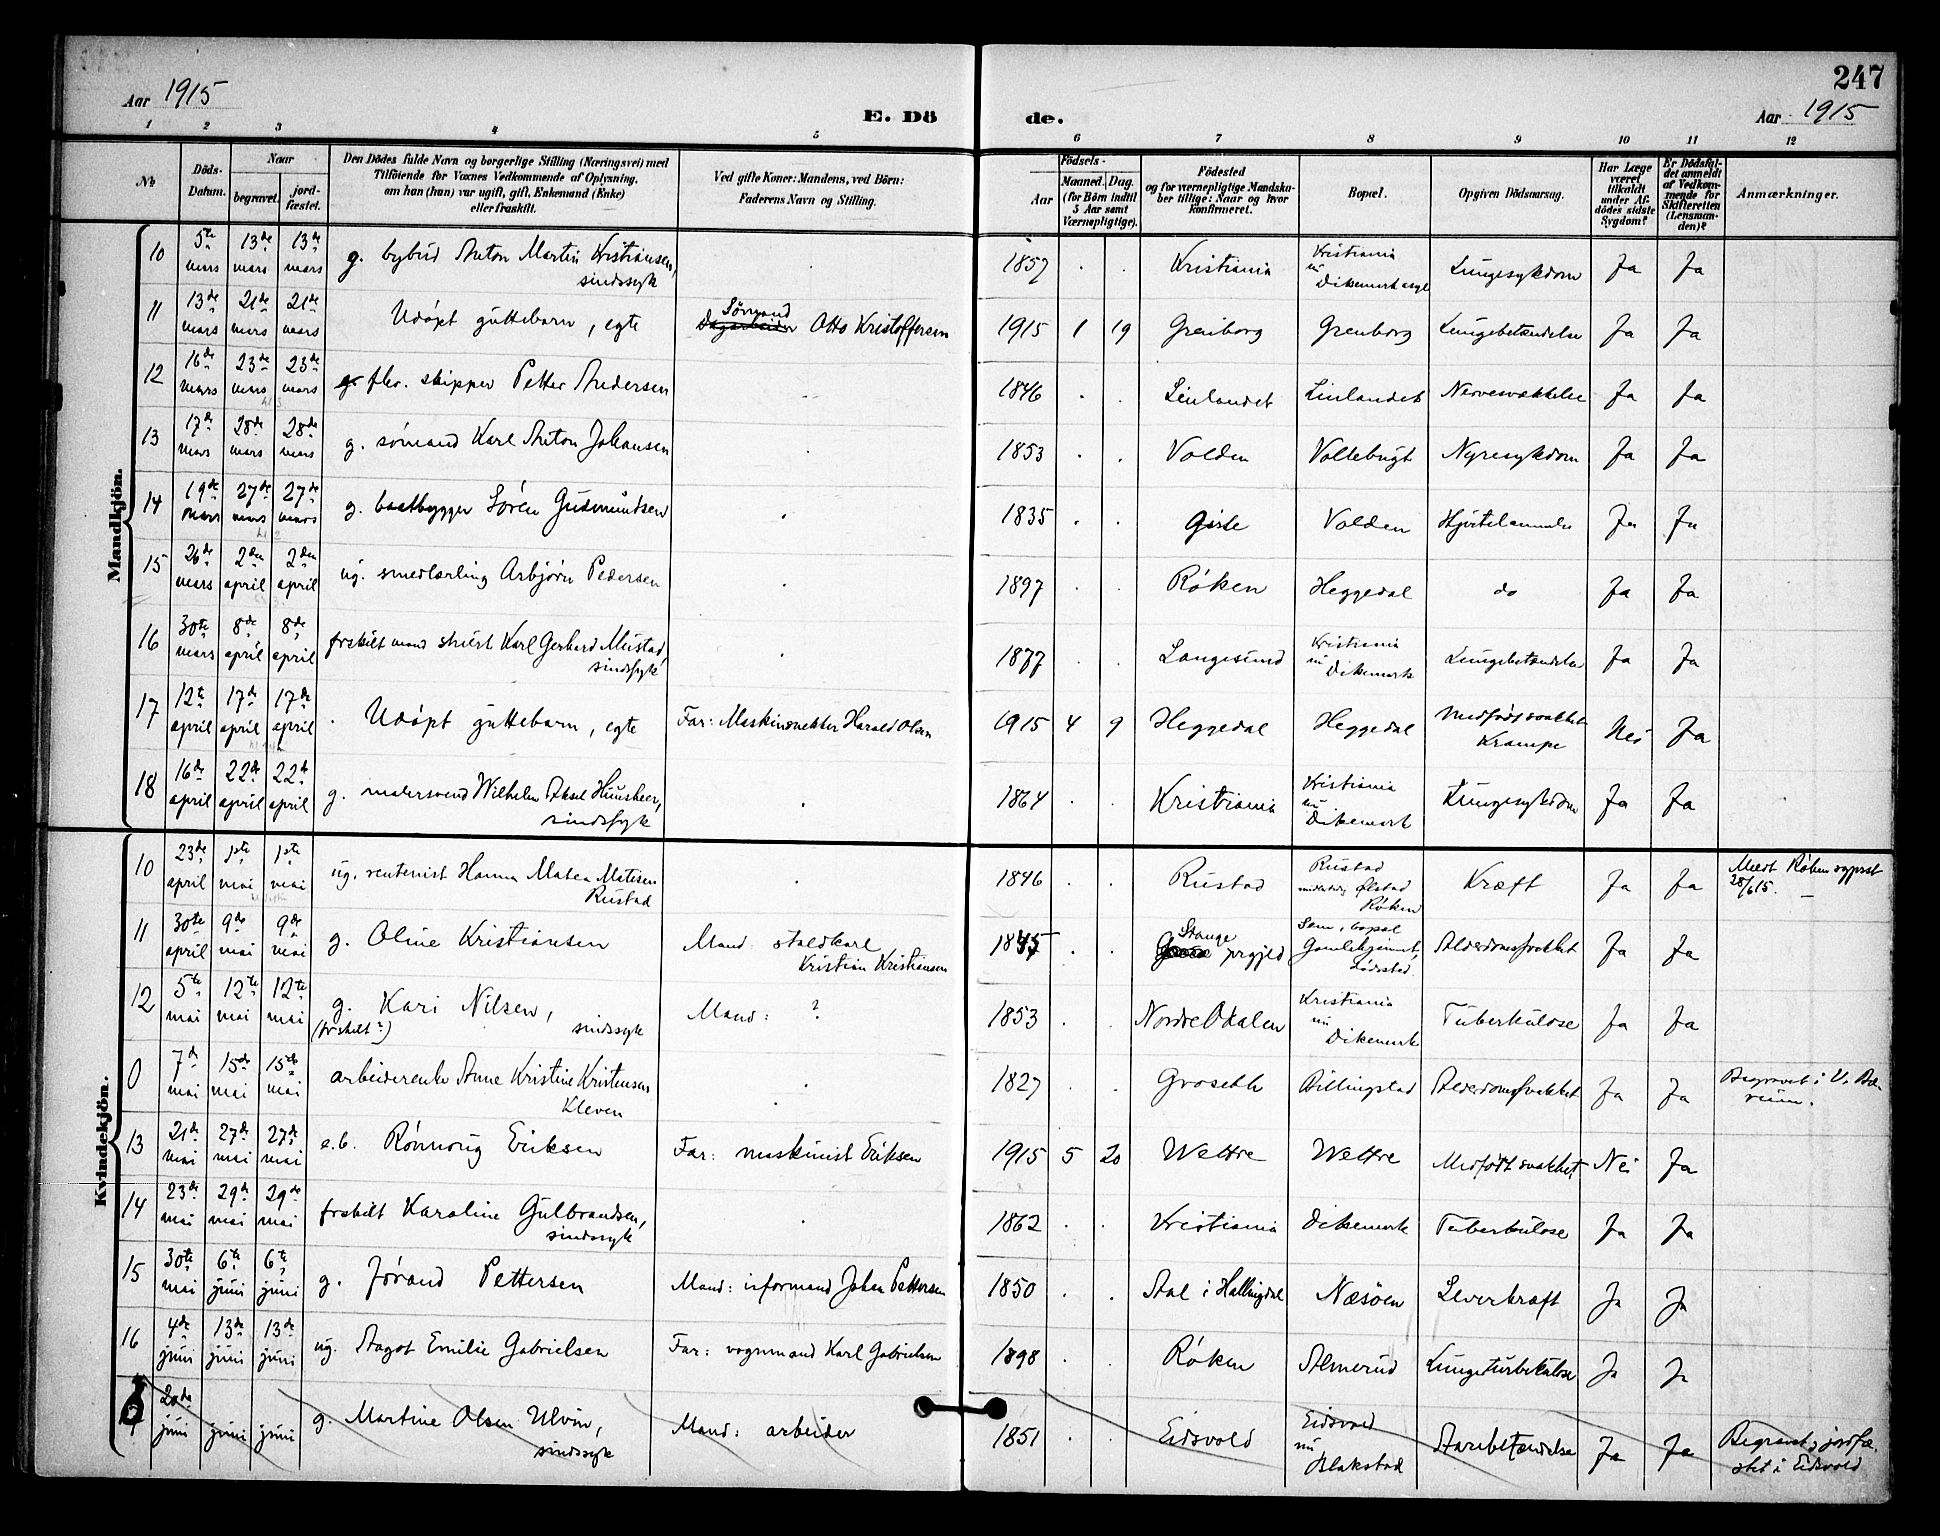 247
Aar 1915
E. Dö
de.
Aar 1915
1 2 3 4 5 6 7 8 9 10 11 12
No
Döds-Datum.
Naar
begravet.
jord-fæstet.
Den Dödes fulde Navn og borgerlige Stilling (Næringsvei) med
Tilföiende for Voxnes Vedkommende af Oplysning,
om han (hun) var ugift, gift, Enkemand (Enke)
eller fraskilt.
Ved gifte Koner: Mandens, ved Börn:
Faderens Navn og Stilling.
Födsels-
Aar
Maaned. Dag.
(for Börn indtil
5 Aar samt
Værnepligtige).
Födested
og for værnepligtige Mandska-
ber tillige: Naar og hvor
konfirmeret.
Bopæl.
Opgiven Dödsaarsag.
Har Læge
været
tilkaldt
under Af-
dödes sidste
Sygdom?
Er Dödsfal-
det anmeldt
af Vedkom-
mende for
Skifteretten
(Lensman-
den)?
Anmærkninger.
Mandkjön.
10 5te mars 13de mars 13de mars g. bybud Anton Martin Kristiansen, sindssyk 1857 Kristiania Kristiania nu Dikemark asyl Lungesykdom Ja Ja
11 13de mars 21de mars 21de mars Udøpt guttebarn, egte Dagarbeider Sömand Otto Kristoffersen 1915 1 19 Grenborg Grenborg Lungebetændelse Ja Ja
12 16de mars 23de mars 23de mars g. fhv. skipper Petter Andersen 1846 Leilandet Leilandet Nervesvækkelse Ja Ja
13 17de mars 28de mars 28de mars g. sömand Karl Anton Johansen 1853 Volden Vollebugt Nyresykdom Ja Ja
14 19de mars 27de mars 27de mars g. baatbygger Sören Gudmundsen 1835 Gisle Volden Hjertelammelse Ja Ja
15 26de mars 2den april 2den april ug. smedlærling Arbjørn Pedersen 1897 Røken Heggedal do Ja Ja
16 30te mars 8de april 8de april frskilt mand stuert Karl Gerhard Mustad, sindssyk 1877 Langesund Kristiania nu Dikemark Lungebetændelse Ja Ja
17 12te april 17de april 17de april Udøpt guttebarn, egte Far: Maskinsnekker Harald Olsen 1915 4 9 Heggedal Heggedal Medfødt svakhet Krampe Nei Ja
18 16de april 22de april 22de april g. malersvend Wilhelm Aksel Huusheer, sindssyk 1864 Kristiania Kristiania nu Dikemark Lungesykdom Ja Ja
Kvindekjön.
10 23de april 1ste mai 1ste mai ug. rentenist Hanna Matea Matisen Rustad 1846 Rustad Rustad midlertidig Ølstad Røken Kræft Ja Ja Meldt Røken sogneprst 28/6 15.
11 30te april 9de mai 9de mai g. Oline Kristiansen Mand: staldkarl Kristian Kristiansen 1845 Stange prgjeld Sem, bopæl Gamlehjemmet, Lödestad. Alderdomssvakhet Ja Ja
12 5te mai 12te mai 12te mai g. (frskilt?) Kari Nilsen, sindssyk Mand: ? 1853 Nordre Odalen Kristiania nu Dikemark Tuberkulose Ja Ja
0 7de mai 15de mai 15de mai arbeiderenke Anne Kristine Kristensen Kleven 1827 Groseth Billingstad Alderdomssvakhet Ja Ja Begravet i V. Bærum.
13 21de mai 27de mai 27de mai e.b. Rönnoug Eriksen Far: maskinist Eriksen 1915 5 20 Wettre Wettre Medfødt svakhet Nei Ja
14 23de mai 29de mai 29de mai frskilt Karoline Gulbrandsen, sindssyk 1862 Kristiania Dikemark Tuberkulose Ja Ja
15 30te mai 6te juni 6te juni g. Jörand Pettersen Mand: informand Johan Pettersen 1850 Aal i Hallingdal Næsöen Leverkræft Ja Ja
16 4de juni 13de juni 13de juni ug. Aagot Emilie Gabrielsen Far: vognmand Karl Gabrielsen 1898 Røken Almerud Lungetuberkulose Ja Ja
0 20de juni juni juni g. Martine Olsen Ulvin, sindssyk Mand: arbeider 1851 Eidsvold Eidsvold nu Blakstad Aarebetændelse Ja Ja Begravet og jordfæstet i Eidsvold